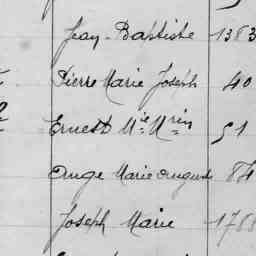 Jean-Baptiste 1383
Pierre Marie Joseph 40
Ernest Mie Mrin 51
Ange Marie August 84
Joseph Marie